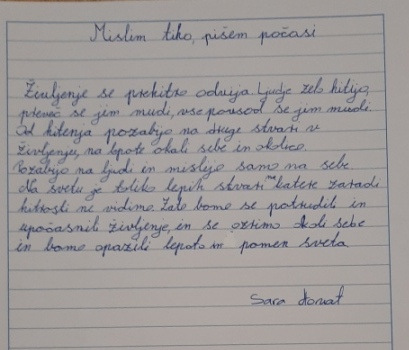 Mislim tiho, pišem počasi
Življenje se prehitro odvija. Ljudje zelo hitijo,
preveč se jim mudi, vse povsod se jim mudi.
Od hitenja pozabijo na druge stvari v
življenju, na lepote okoli sebe in okolico.
Pozabijo na ljudi in mislijo samo na sebe
Na svetu je toliko lepih stvari katere zaradi
hitrosti ne vidimo. Zato bomo se potrudili in
upočasnili življenje, in se ozrimo okoli sebe
in bomo opazili lepoto in pomen sveta.
Sara Horvat